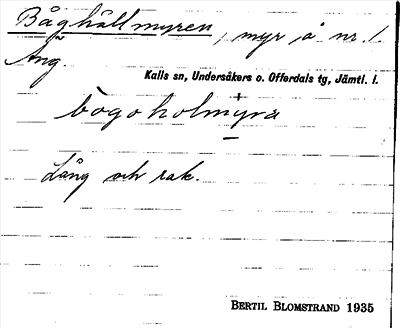 Båghållmyren, myr å nr. 1
Äng.
Kalls sn, Undersåkers o. Offerdals tg, Jämtl. l.
bògoholmyra
Lång och rak.
BERTIL BLOMSTRAND 1935